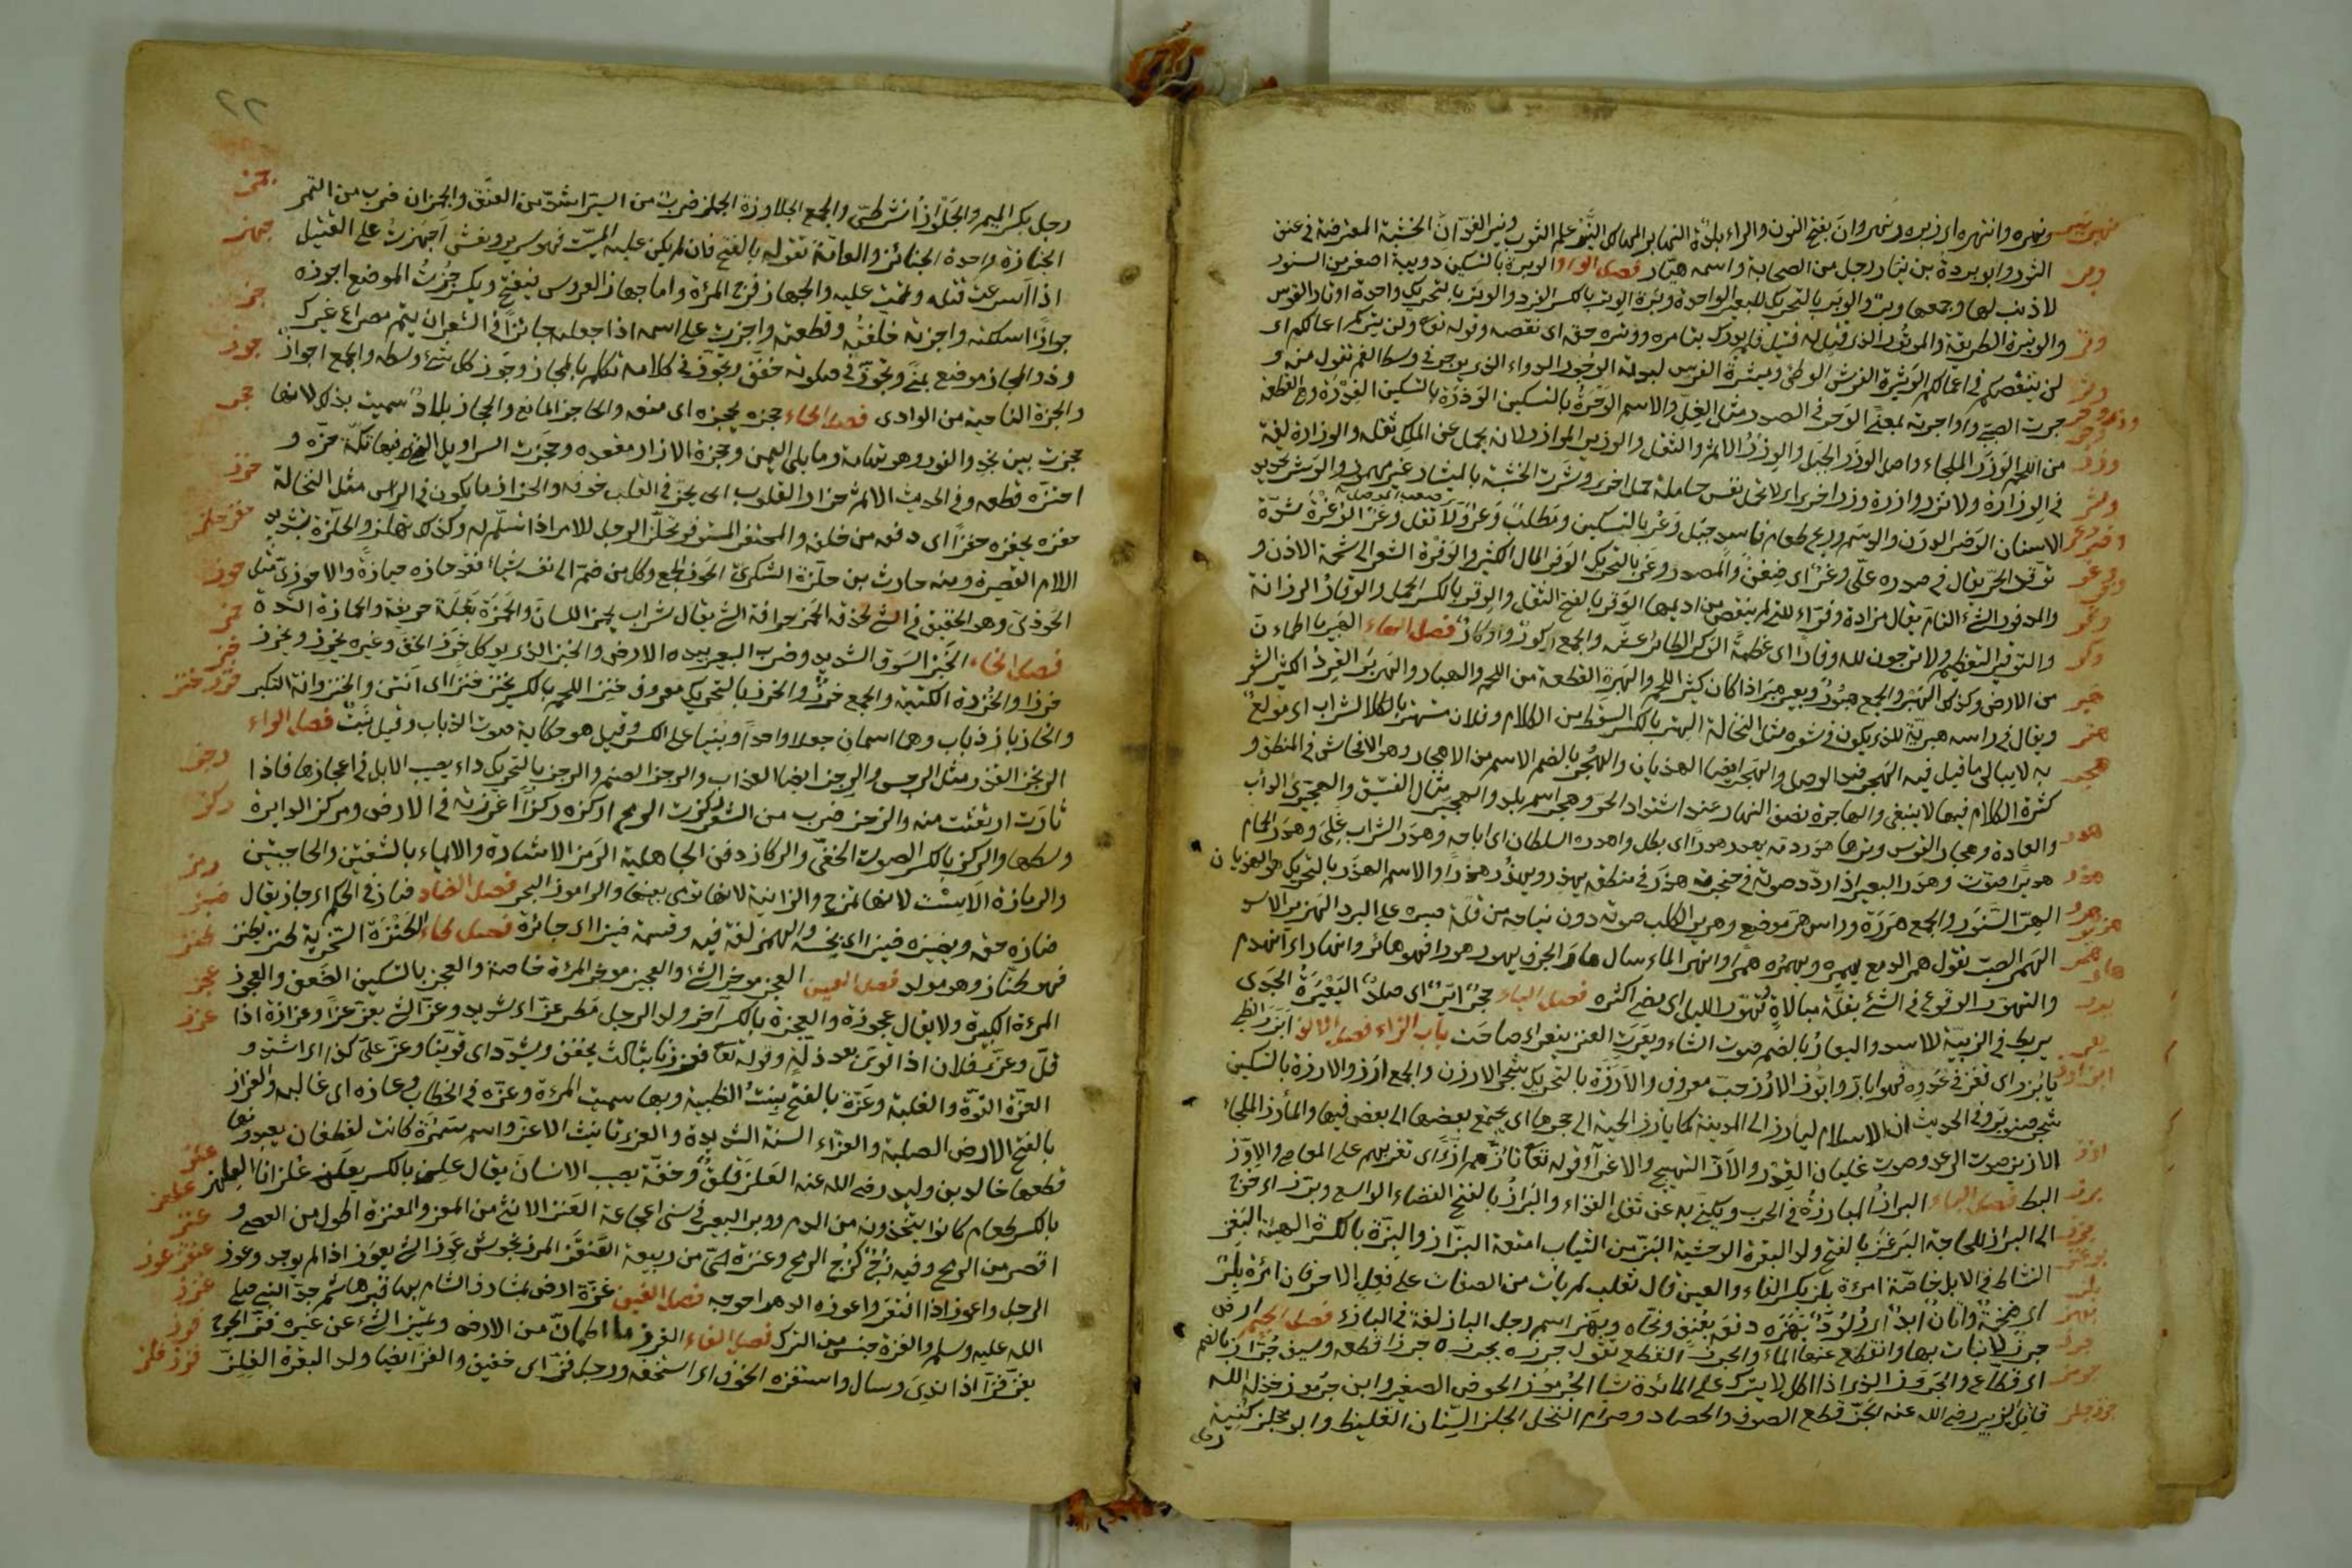 ونهره وانتهره اى زبره ونهروان بفتح النون والراء بلدة النهابر المهالك النير علم الثوب ونير الفدان الخشبة المعترضة فى عنق
الثور وابو بردة بن نيار رجل من الصحابة واسمه هانئ فصل الواو الوبرة بالتسكين دويبة اصغر من السنور
لا ذنب لها وجمعها وبر والوبر بالتحريك للبعير الواحدة وبرة الوتر بالكسر الفرد والوتر بالتحريك واحدة اوتار القوس
والوتيرة الطريقة والموتور الذى قتل له قتيل فلم يدرك بثاره ووتره حقه اى نقصه وقوله تع ولن يتركم اعمالكم اى
لن ينتقصكم فى اعمالكم الوثيرة الفرش الوطئ وميثرة الفرس لبدته الوجور الدواء الذى يوجر فى وسط الفم تقول منه و
وجرت الصبى واوجرته بمعنى الوحر فى الصدر مثل الغل والاسم الوحرة بالتسكين الوذرة بالتسكين الفدرة وهى القطعة
من اللحم الوزر الملجاء واصل الوزر الجبل والوزر الاثم والثقل والوزير الموازر لانه يحمل عن الملك ثقله والوزارة لغة
فى الوزارة ولا تزر وازرة وزر اخرى اى لا تحمل نفس حاملة حمل اخرى وشرت الخشبة بالميشار غير مهموز والوشر تحديد
الاسنان الوضر الدرن والوسم وريح طعام فاسد جبل وعر بالتسكين ومطلب وعر ولا تقل وعر الوغرة شدة
توقد الحر يقال فى صدره على وغر اى ضغن والمصدر وغر بالتحريك الوفر المال الكثير والوفرة الشعر الى شحمة الاذن و
والموفور الشئ التام يقال مزادة وفراء للتى لم ينقص من اديمها الوقر بالفتح الثقل والوقر بالكسر الحمل والوقار الرزانة
والتوقير التعظيم ولا ترجون لله وقارا اى عظمة الوكر للطائر عشه والجمع وكور واوكار فصل الهاء الهبير ما اطمان
من الارض وكذلك الهبر والجمع هبور وبعير هبر اذا كان كثير اللحم والهبرة القطعة من اللحم والهبار والهوبر القرد الكثير الشعر
ويقال فى راسه هبرية للذى يكون فى شعره مثل النخالة الهتر بالكسر السقط من الكلام وفلان مستهتر بالشراب اى مولع
به لا يبالى ما قيل فيه الهجر ضد الوصل والهجر ايضا الهذيان والهجر بالضم الاسم من الاهجار وهو الافحاش فى المنطق و
كثرة الكلام فيما لا ينبغى والهاجرة نصف النهار عند اشتداد الحر وهجر اسم بلد والهجير مثال الفسيق والهجيرى الداب
والعادة وهجار القوس وترها هدر دمه يهدر هدرا اى بطل واهدره السلطان اى اباحه وهدر الشراب غلى وهدر الحمام
هديرا صوت وهدر البعير اذا ردد صوته فى حنجرته هذر فى منطقه يهذر ويهذر هذرا والاسم الهذر بالتحريك هو الهذيان
الهر السنور والجمع هررة وراس هر موضع وهرير الكلب صوته دون نباحه من قلة صبره على البرد الهزبر الاسد
الهمر الصب تقول همر الدمع يهمره ويهمره همرا وانهمر الماء سال هار الجرف يهور هورا فهو هائر وانهار اى انهدم
والتهور الوقوع فى الشئ بقلة مبالاة تهور الليل اى مضى اكثره فصل الياء حجر اير اى صلد اليعرة الجدى
يربط فى الزبية للاسد واليعار بالضم صوت الشاء ويعرت العنز تيعر اى صاحت باب الزاء فصل الالف ابز الظبى
يابز اى نفز فى عدوه فهو اباز وابوز الارز حب معروف والارزة بالتحريك شجر الارزن والجمع ارز والارزة بالتسكين
شجر صنوبر وفى الحديث ان الاسلام ليارز الى المدينة كما يارز الحية الى جحرها اى يجتمع بعضها الى بعض فيها والمارز الملجاء
الازيز صوت الرعد وصوت غليان القدر والاز التهييج والاغراء وقوله تع تازهم ازا اى تغريهم على المعاصى والاوز
البط فصل الباء البراز المبارزة فى الحرب ويكنى به عن ثفل الغذاء والبراز بالفتح الفضاء الواسع وبرز اى خرج
الى البراز للحاجة البرغز بالفتح ولد البقرة الوحشية البز من الثياب امتعة البزاز والبزة بالكسرة الهيئة البغز
النشاط فى الابل خاصة امرءة بلز بكسر الفاء والعين قال ثعلب لم يات من الصفات على فعل الا حرفان امرءة بلز
اى ضخمة واتان ابد اى ولود بهزه دفعه بعنف ونحاه وبهز اسم رجل الباز لغة فى البازى فصل الجيم ارض
جرز لا نبات بها وانقطع عنها الماء والجرز القطع تقول جرزه يجرزه جرزا قطعه وسيف جراز بالضم
اى قطاع والجروز الذى اذا اكل لا يترك على المائدة شيا الجرموز الحوض الصغير وابن جرموز خذله الله
قاتل الزبير رضى الله عنه الجز قطع الصوف والحصاد وصرام النخل الجلز السنان الغليظ وابو مجلز كنية
رجل
٢٢
رجل بكسر الميم والجلواز الشرطى والجمع الجلاوزة الجمز ضرب من السير اشد من العنق والجمزان ضرب من التمر
الجنازة واحدة الجنائز والعامة تقوله بالفتح فان لم يكن عليه الميت فهو سرير ونعش اجهزت على القتيل
اذا اسرعت قتله وتممت عليه والجهاز فرج المرءة واما جهاز العروس يفتح ويكسر جزت الموضع اجوزه
جوازا اسلكته واجزته خلفته وقطعته واجزت على اسمه اذا جعلته جائزا فى الشعر ان يتم مصراع غيرك
وذو المجاز موضع بمنى وتجوز فى صلوته خفف وتجوز فى كلامه تكلم بالمجاز وجوز كل شئ وسطه والجمع اجواز
والجزة الناحية من الوادى فصل الحاء حجزه يحجزه اى منعه والحاجز المانع والحجاز بلاد سميت بذلك لانها
حجزت بين نجد والغور وهو تهامة وما يلى اليمن وحجزة الازار معقده وحجزت السراويل التى فيها تكة حزه و
احتزه قطعه وفى الحديث الاثم حزاز القلوب اى يحز فى القلب خوفه والحزاز ما يكون فى الراس مثل النخالة
حفزه يحفزه حفزا اى دفعه من خلفه والمحتفز المستوفز تحلز الرجل للامر اذا تشمر له وكذلك تهلز والحلزة بتشديد
اللام القصيرة ومنه حارث بن حلزة اليشكرى الحوز الجمع وكل من ضم الى نفسه شياء فقد حازه حيازة والاحوزى مثل
الحوذى وهو الخفيف فى الشئ لحذقه الحمز حرافة الشئ يقال شراب يحمز اللسان والحمزة بقلة حريفة والحمازة الشدة
فصل الخاء الخبز السوق الشديد وضرب البعير بيده الارض والخبز الذى يوكل خرز الخف وغيره يخرز ويخرز
خرزا والخرزة الكتبة والجمع خرز والخرز بالتحريك معروف خنز اللحم بالكسر يخنز خنزا اى انتن والخنزوانة التكبر
والخاز باز ذباب وهما اسمان جعلا واحدا وبنيا على الكسر وقيل هو حكاية صوت الذباب وقيل نبت فصل الراء
الرجز القذر مثل الرجس والرجز ايضا العذاب والرجز الصنم والرجز بالتحريك داء يصيب الابل فى اعجازها فاذا
ثارت ارتعشت منه والرجز ضرب من الشعر ركزت الرمح اركزه ركزا اغرزته فى الارض ومركز الدايرة
وسطها والركز بالكسر الصوت الخفى والركاز دفن الجاهلية الرمز الاشارة والايماء بالشفتين والحاجبين
والرمازة الاست لانها تموج والزانية لانها تومى بعينها والراموز البحر فصل الضاد ضاز فى الحكم اى جار يقال
ضازه حقه ويضيزه ضيزا اى بخسه والهمز لغة فيه وقسمة ضيزا اى جائرة فصل الطاء الطنزة السخرية طنز يطنز
فهو طناز وهو مولد فصل العين العجز موخر الشئ والعجيز موخر المرءة خاصة والعجز بالتسكين الضعف والعجوز
المرءة الكبيرة ولا يقال عجوزة والعجزة بالكسر آخر ولد الرجل مطر عز اى شديد وعز الشئ يعز عزا وعزازة اذا
قل وعز فلان اذا قوى بعد ذلة وقوله تع فعززنا بثالث يخفف ويشدد اى قوينا وعز على كذا اى اشتد و
العزة القوة والغلبة وعزة بالفتح بنت الظبية وبها سميت المرءة وعزه فى الخطاب وعازه اى غالبه والعزاز
بالفتح الارض الصلبة والعزاء السنة الشديدة والعزى تانيث الاعز واسم سمرة كانت لغطفان يعبدونها
قطعها خالد بن وليد رضى الله عنه العلز قلق وخفة يصيب الانسان يقال علز بالكسر يعلز علزانا العلهز
بالكسر طعام كانوا يتخذون من الدم ووبر البعير فى سنى المجاعة العنز الانثى من المعز والعنزة اطول من العصى و
اقصر من الرمح وفيه زج كزج الرمح وعنزة حى من ربيعة العنقز المرزنجوش عوز الشئ يعوز اذا لم يوجد وعوز
الرجل واعوز اذا افتقر واعوزه الدهر احوجه فصل الغين غزة ارض بمشارف الشام بها قبر هاشم جد النبى صلى
الله عليه وسلم والغزة جنس من الترك فصل الفاء الفرز ما اطمان من الارض وتميز الشئ عن غيره فز الجرح
يفز فزا اذا ندى وسال واستفزه الخوف اى استخفه ورجل فز اى خفيف والفز ايضا ولد البقرة الفلز